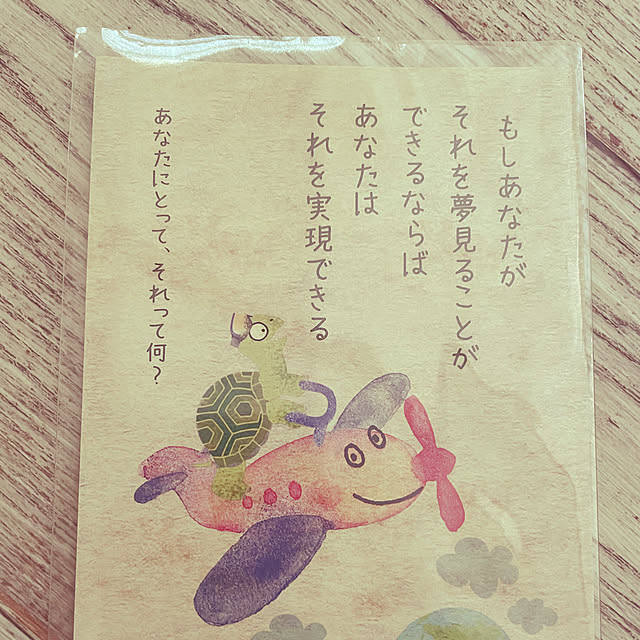 もしあなたが
それを夢見ることが
できるならば
あなたは
それを実現できる
あなたにとって、それって何？